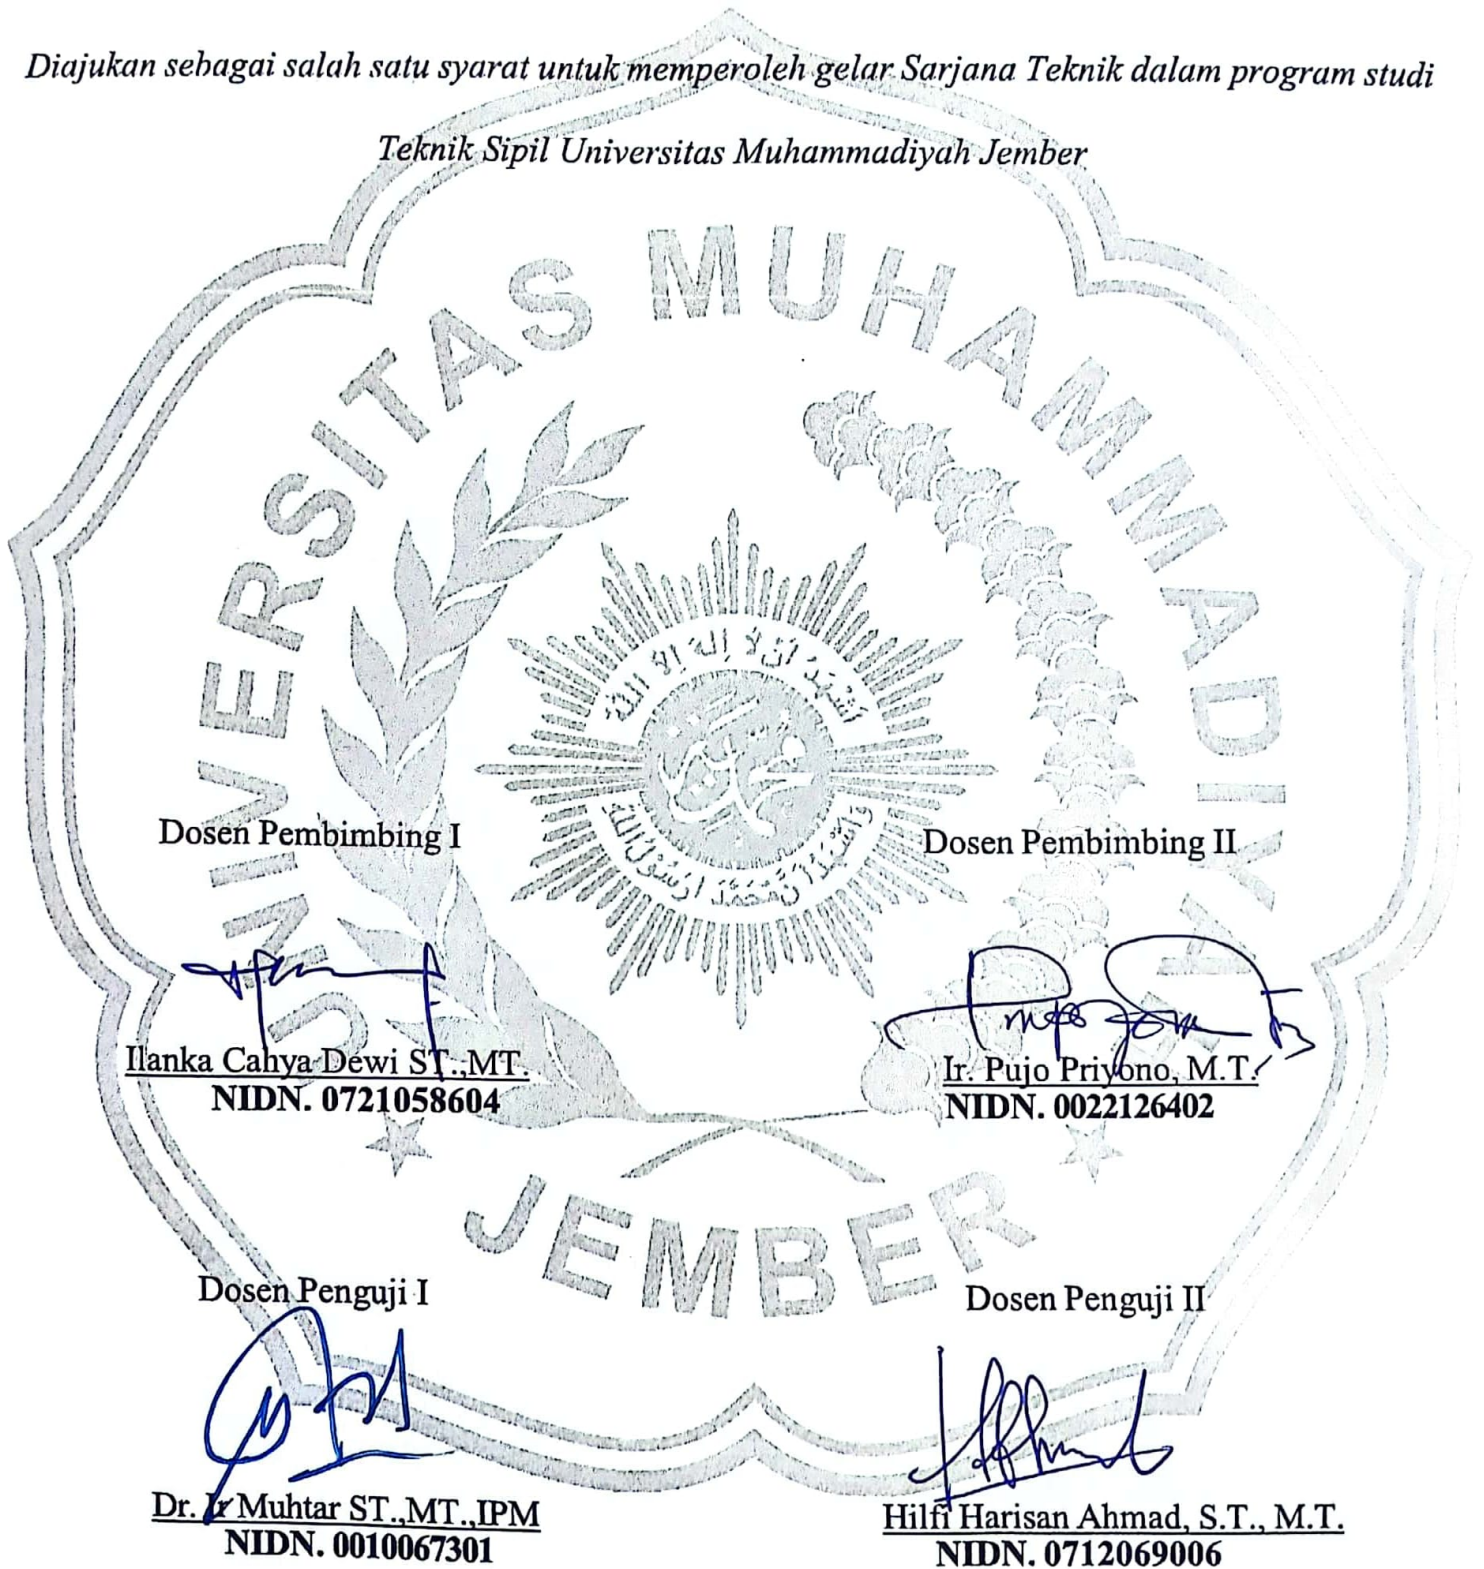 Diajukan sebagai salah satu syarat untuk memperoleh gelar Sarjana Teknik dalam program studi
Teknik Sipil Universitas Muhammadiyah Jember
UNIVERSITAS MUHAMMADIYAH
JEMBER
Dosen Pembimbing I
Dosen Pembimbing II
Ilanka Cahya Dewi ST.,MT.
NIDN. 0721058604
Ir. Pujo Priyono, M.T.
NIDN. 0022126402
Dosen Penguji I
Dosen Penguji II
Dr. Ir Muhtar ST.,MT.,IPM
NIDN. 0010067301
Hilfi Harisan Ahmad, S.T., M.T.
NIDN. 0712069006